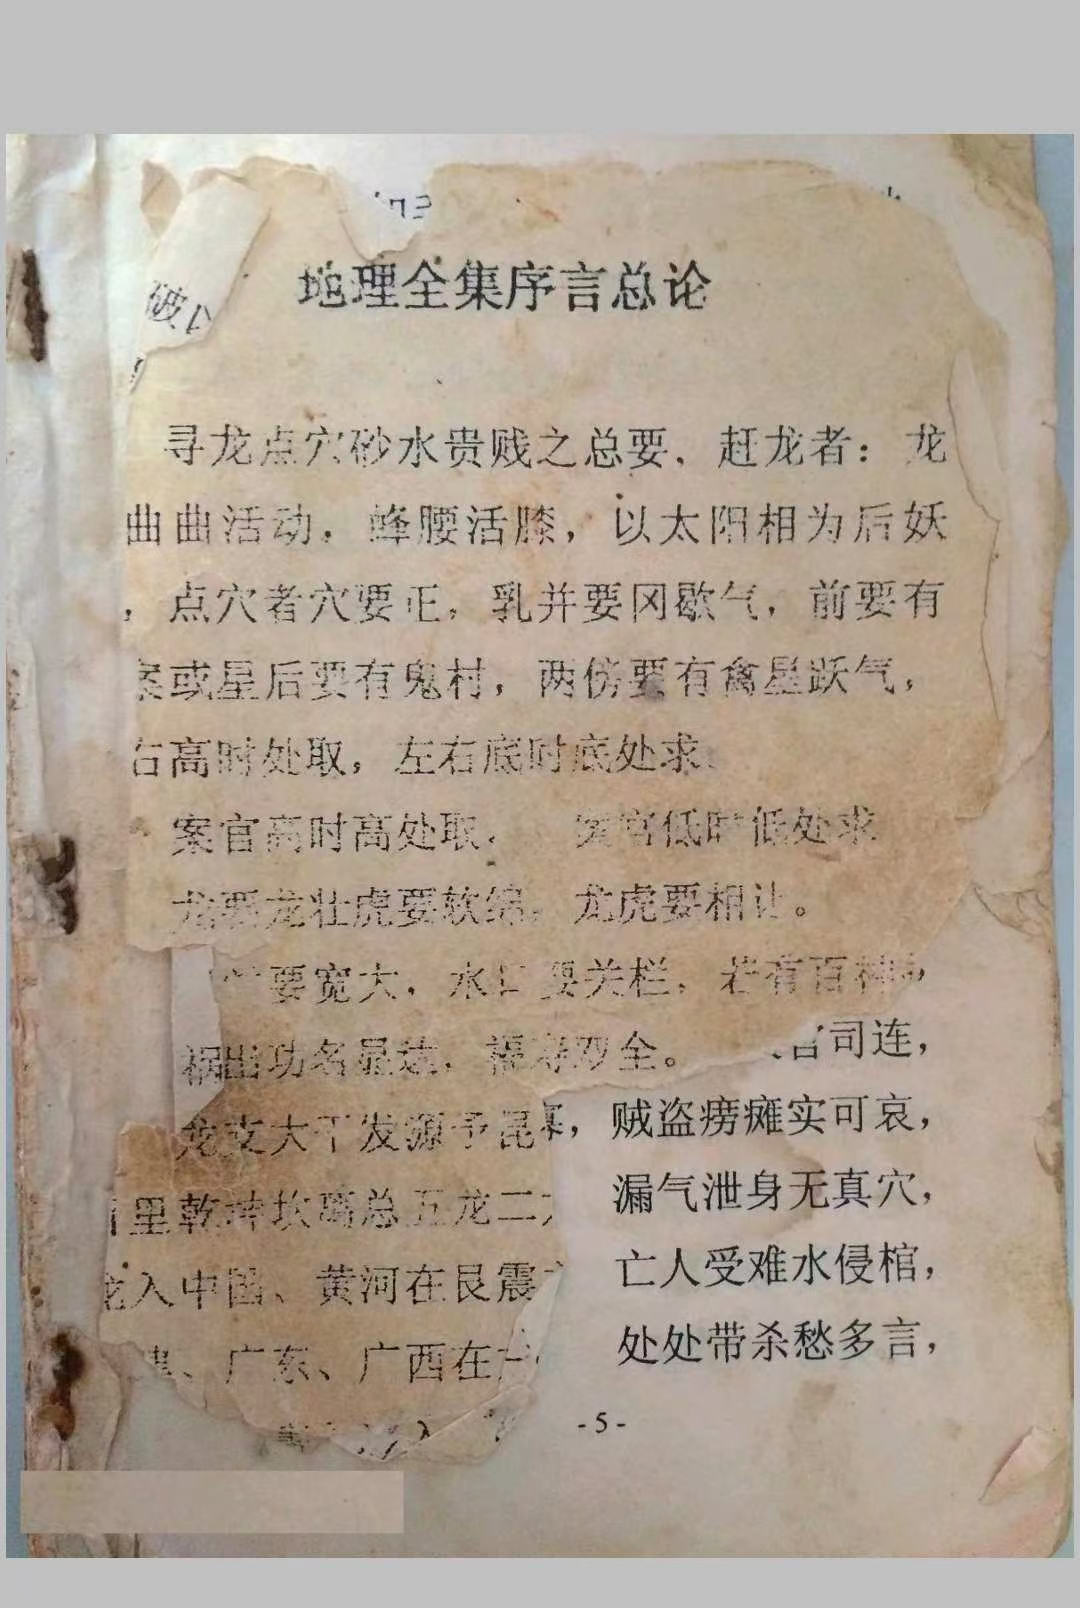 地理全集序言总论
寻龙点穴砂水贵贱之总要、赶龙者：龙
曲曲活动，蜂腰活膝，以太阳相为后妖
，点穴者穴要正，乳并要冈歇气，前要有
案或星后要有鬼村，两傍要有禽星跃气，
右高时处取，左右底时底处求
案官高时高处取， 案官低时低处求
龙要龙壮虎要软绵，龙虎要相让。
要宽大，水口要关栏，若有百神
祸出功名显达，福寿双全。 官司连，
龙支大干发源于昆 ，贼盗痨瘫实可哀，
里乾坤坎离总五龙二 漏气泄身无真穴，
龙入中国、黄河在艮震 亡人受难水侵棺，
建、广东、广西在 处处带杀愁多言，
入
-5-
破